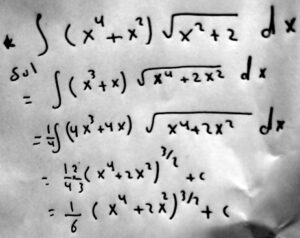 * ∫ (x⁴ + x²) √(x² + 2) dx
Sol
= ∫ (x³ + x) √(x⁴ + 2x²) dx
= 1/4 ∫ (4x³ + 4x) √(x⁴ + 2x²) dx
= 1/4 2/3 (x⁴ + 2x²)^(3/2) + c
= 1/6 (x⁴ + 2x²)^(3/2) + c